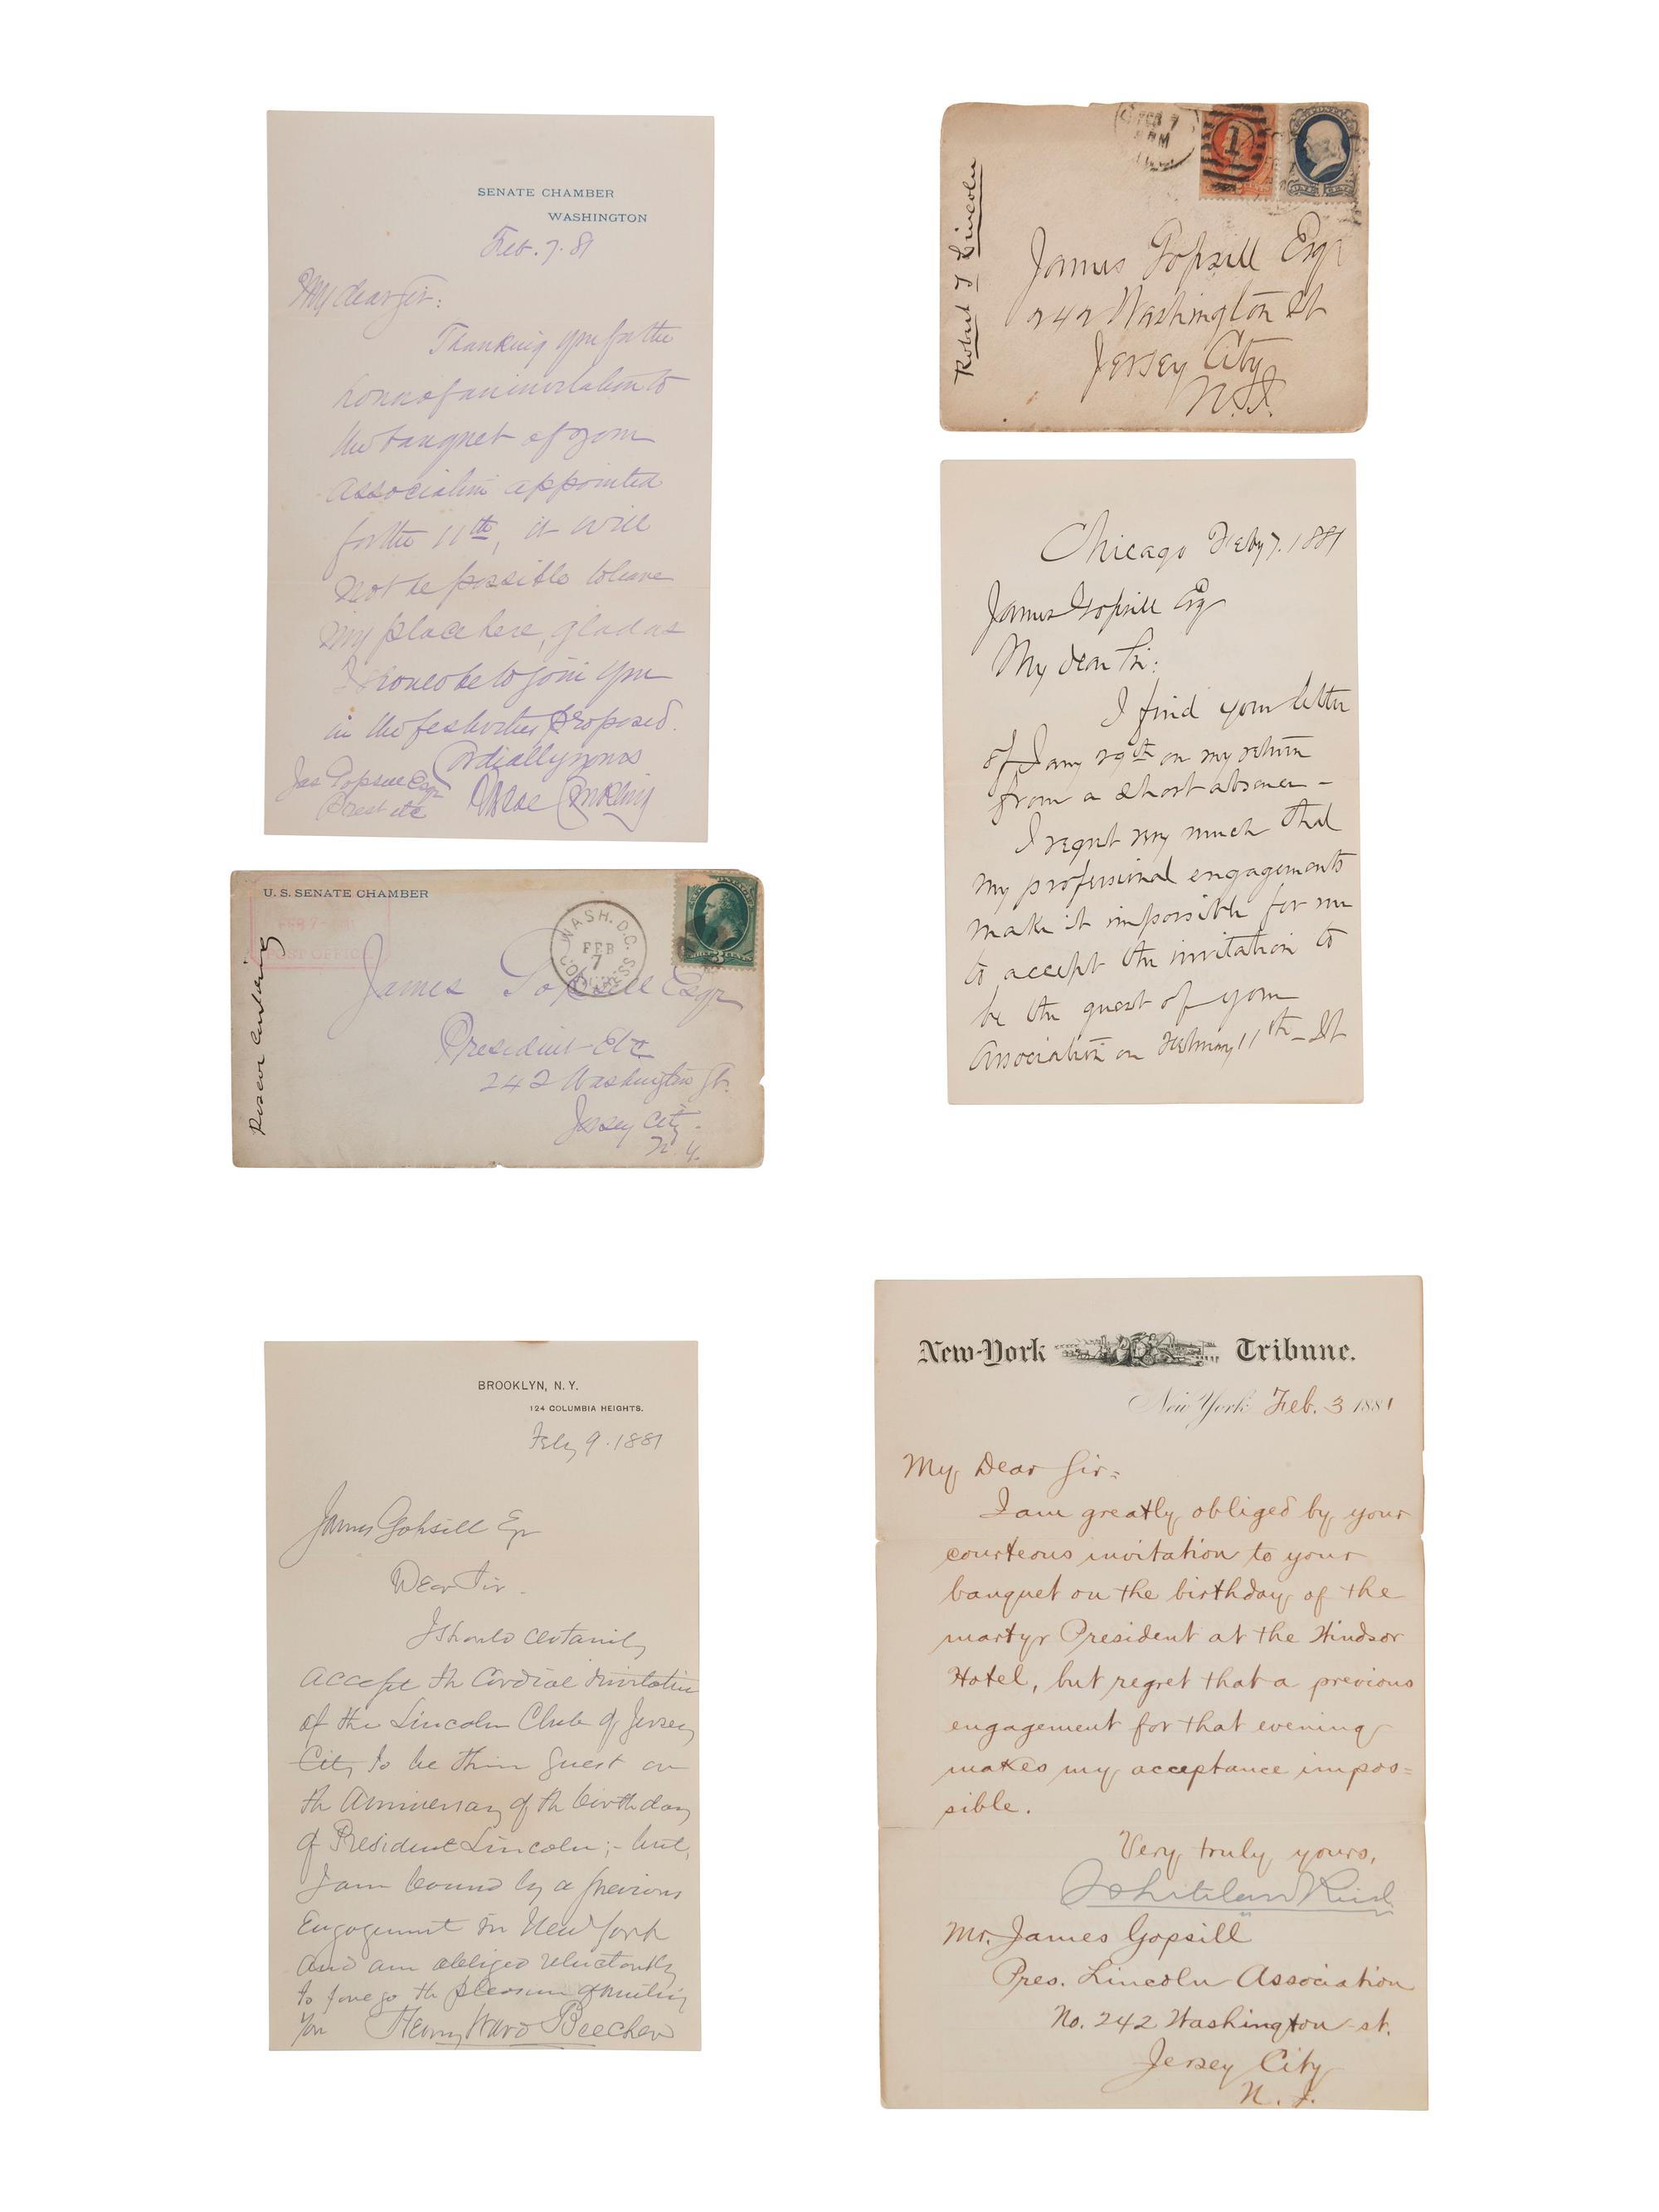 SENATE CHAMBER
WASHINGTON
Feb. 7. 81
My dear Sir:
Thanking you for the
honor of an invitation to
the banquet of your
Association appointed
for the 11th, it will
not be possible to leave
my place here, glad as
I should be to join you
in the festivities proposed.
Cordially yours
Jas Gopsill Esqr
Prest etc
Roscoe Conkling
U. S. SENATE CHAMBER
FEB 7
POST OFFICE
WASH. D.C.
FEB
7
CONGRESS
3
Roscoe Conkling
James Gopsill Esqr
President Etc
242 Washington St.
Jersey City.
N. Y.
FEB 7
PM
1
Robert T Lincoln
James Gopsill Esqr
242 Washington St
Jersey City
N.J.
Chicago Feby 7. 1881
James Gopsill Esq
My dear Sir:
I find your letter
of Jany 29th on my return
from a short absence –
I regret very much that
my professional engagements
make it impossible for me
to accept the invitation to
be the guest of your
Association on February 11th – It
BROOKLYN, N. Y.
124 COLUMBIA HEIGHTS.
Feby 9. 1881
James Gopsill Esq
Dear Sir.
I should certainly
accept the cordial invitation
of the Lincoln Club of Jersey
City to be their guest on
the Anniversary of the birthday
of President Lincoln; – but,
I am bound by a previous
Engagement in New York
and am obliged reluctantly
to forego the pleasure of meeting
you Henry Ward Beecher
New-York Tribune.
New York Feb. 3 1881
My Dear Sir:
I am greatly obliged by your
courteous invitation to your
banquet on the birthday of the
martyr President at the Windsor
Hotel, but regret that a previous
engagement for that evening
makes my acceptance impos=
sible.
Very truly yours,
Whitelaw Reid
Mr. James Gopsill
Pres. Lincoln Association
No. 242 Washington st.
Jersey City
N. J.